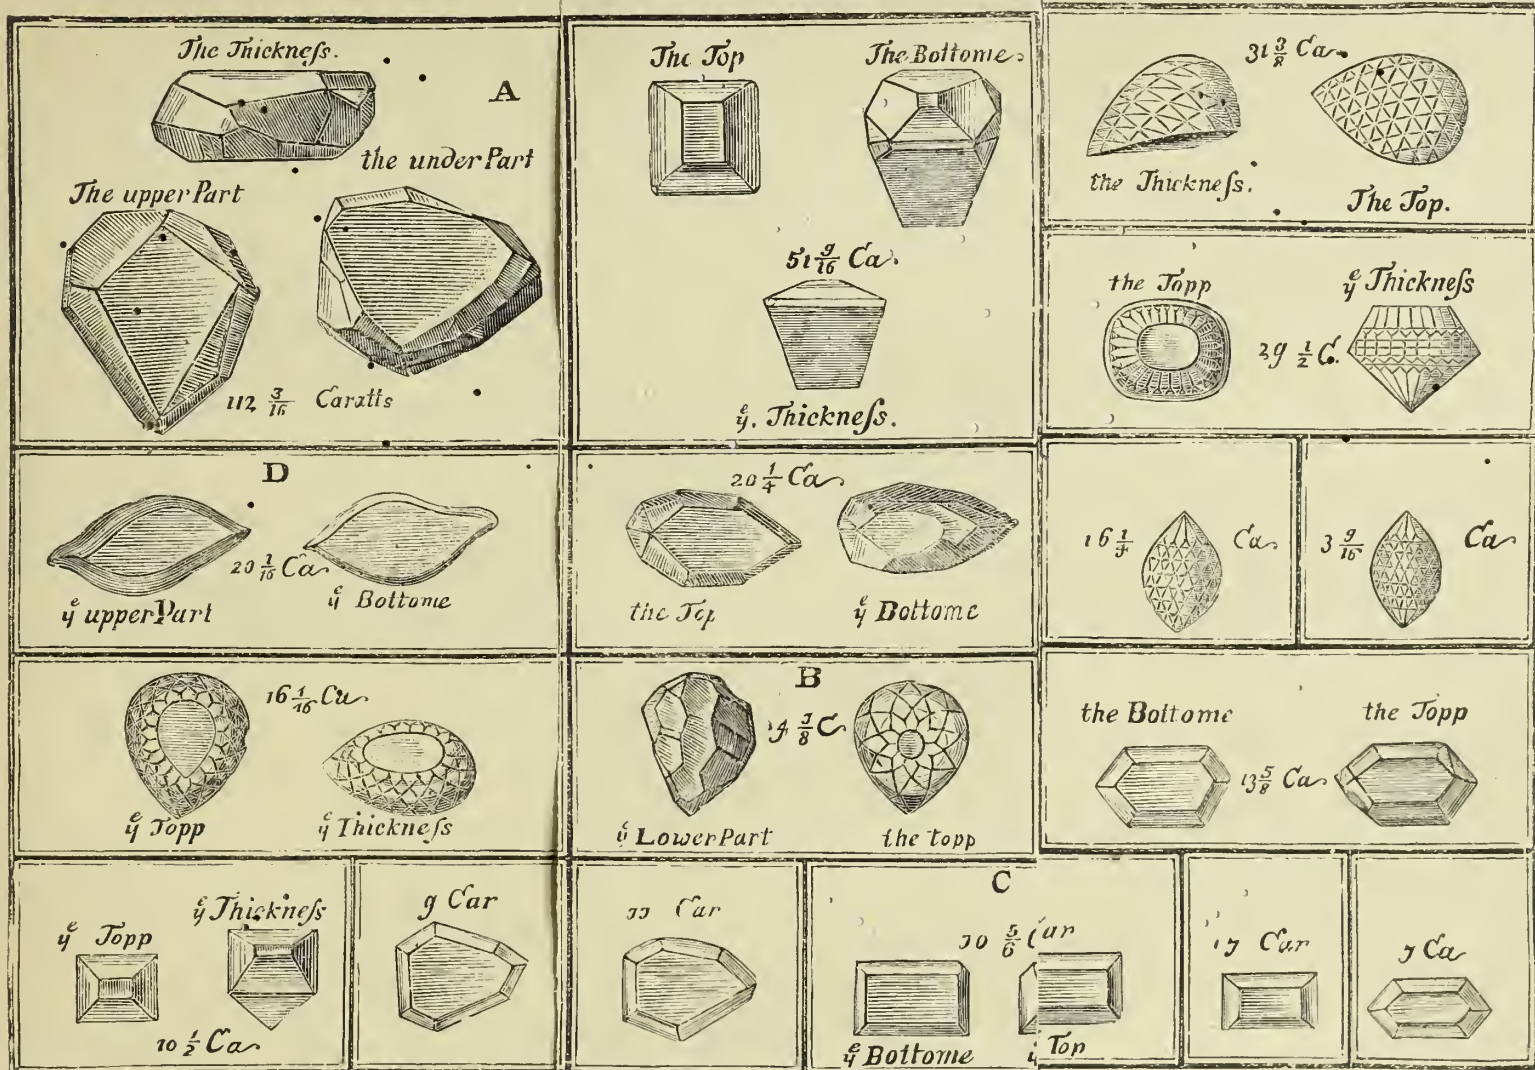 The Thickneſs.
A
the under Part
The upper Part
112 3/16 Caratts
The Top
The Bottome
51 9/16 Ca
yͤ. Thickneſs.
31 3/8 Ca
the Thickneſs.
The Top.
the Topp
yͤ Thickneſs
29 1/2 C.
D
20 1/16 Ca
yͤ upper Part
yͤ Bottome
20 1/4 Ca
the Top
yͤ Bottome
Ca
3 9/16 Ca
16 1/16 Ca
yͤ Topp
yͤ Thickneſs
B
3/8 C
yͤ Lower Part
the topp
the Bottome
the Topp
13 5/8 Ca
yͤ Topp
yͤ Thickneſs
10 1/2 Ca
9 Car
Car
C
Car
yͤ Bottome
Top
Car
Ca